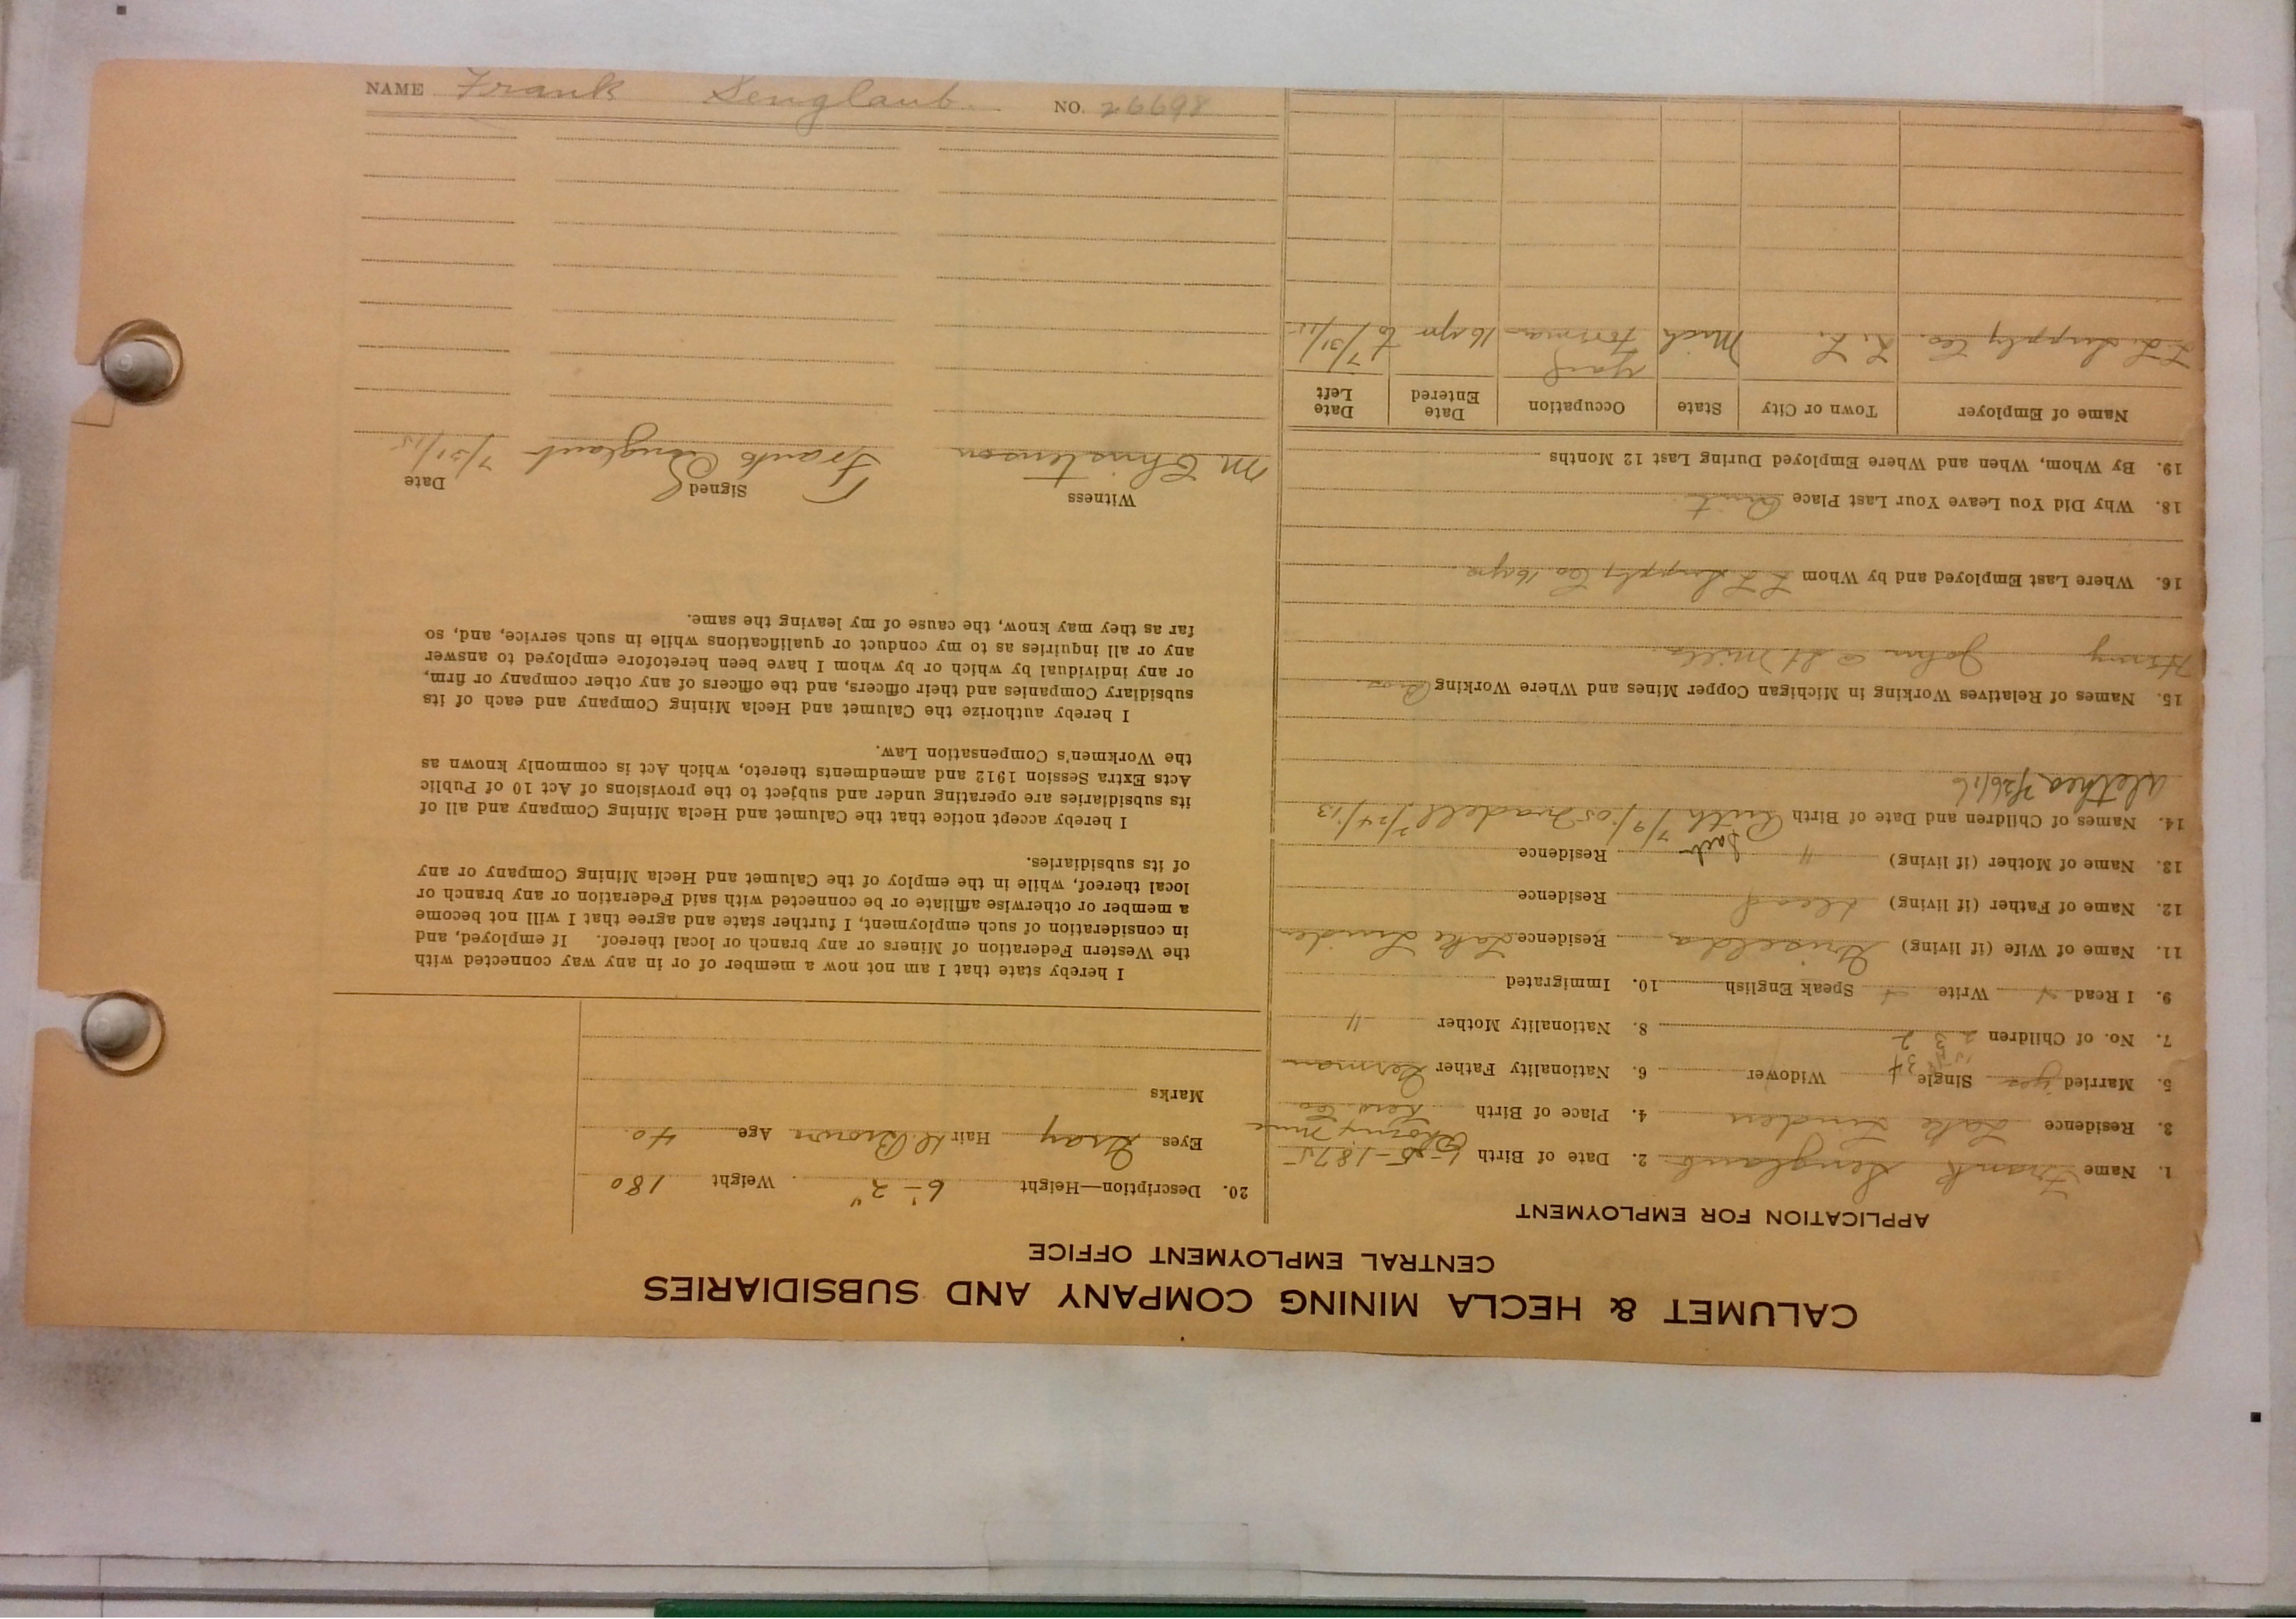 CALUMET & HECLA MINING COMPANY AND SUBSIDIARIES
CENTRAL EMPLOYMENT OFFICE
APPLICATION FOR EMPLOYMENT
1. Name Frank Senglaub 2. Date of Birth 1-25-1875
Phoenix Mine
3. Residence Lake Linden 4. Place of Birth Kew Co
5. Married yes Single Widower 6. Nationality Father German
7. No. of Children 2 3 2 8. Nationality Mother "
9. I Read Write Speak English 10. Immigrated
11. Name of Wife (if living) Griselda Residence Lake Linden
12. Name of Father (if living) dead Residence
13. Name of Mother (if living) " Residence
14. Names of Children and Date of Birth Ruth 7/9/05 7/24/13
Alethea 7/26/16
15. Names of Relatives Working in Michigan Copper Mines and Where Working Bros
Henry John C & H Mills
16. Where Last Employed and by Whom L L Supply Co 16 yrs
18. Why Did You Leave Your Last Place Quit
19. By Whom, When and Where Employed During Last 12 Months
Name of Employer Town or City State Occupation Date Entered Date Left
L L Supply Co. L. L. Mich Yard Foreman 16 yr to 7/31/15
20. Description—Height 6'-2" Weight 180
Eyes Gray Hair D. Brown Age 40
Marks
I hereby state that I am not now a member of or in any way connected with
the Western Federation of Miners or any branch or local thereof. If employed, and
in consideration of such employment, I further state and agree that I will not become
a member or otherwise affiliate or be connected with said Federation or any branch or
local thereof, while in the employ of the Calumet and Hecla Mining Company or any
of its subsidiaries.
I hereby accept notice that the Calumet and Hecla Mining Company and all of
its subsidiaries are operating under and subject to the provisions of Act 10 of Public
Acts Extra Session 1912 and amendments thereto, which Act is commonly known as
the Workmen's Compensation Law.
I hereby authorize the Calumet and Hecla Mining Company and each of its
subsidiary Companies and their officers, and the officers of any other company or firm,
or any individual by which or by whom I have been heretofore employed to answer
any or all inquiries as to my conduct or qualifications while in such service, and, so
far as they may know, the cause of my leaving the same.
Witness Signed Date
M Christenson Frank Senglaub 7/31/15
NAME Frank Senglaub NO. 26698